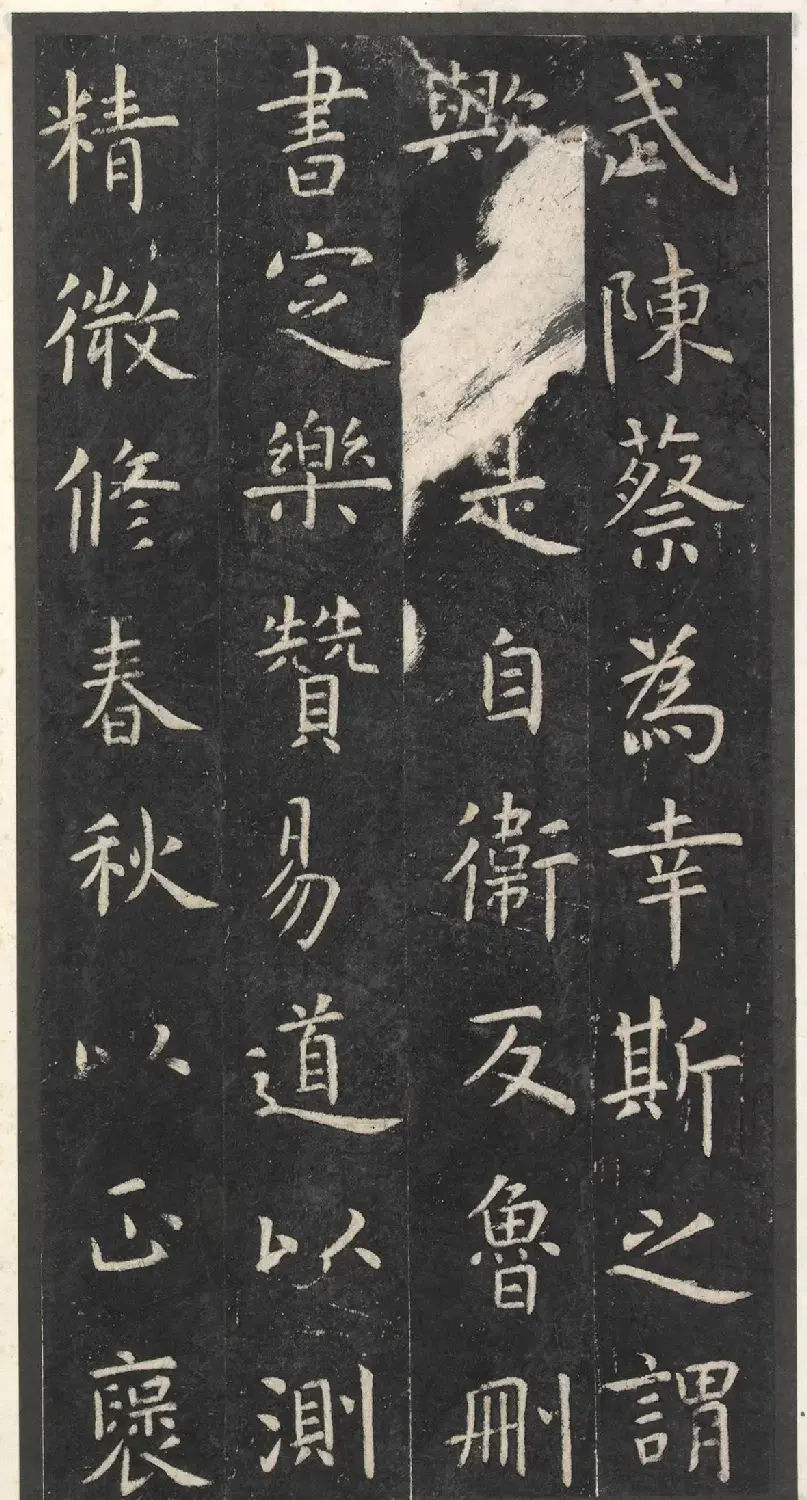 武陳蔡為幸斯之謂
歟是自衛反魯刪
書定樂贊易道以測
精微修春秋以正褒